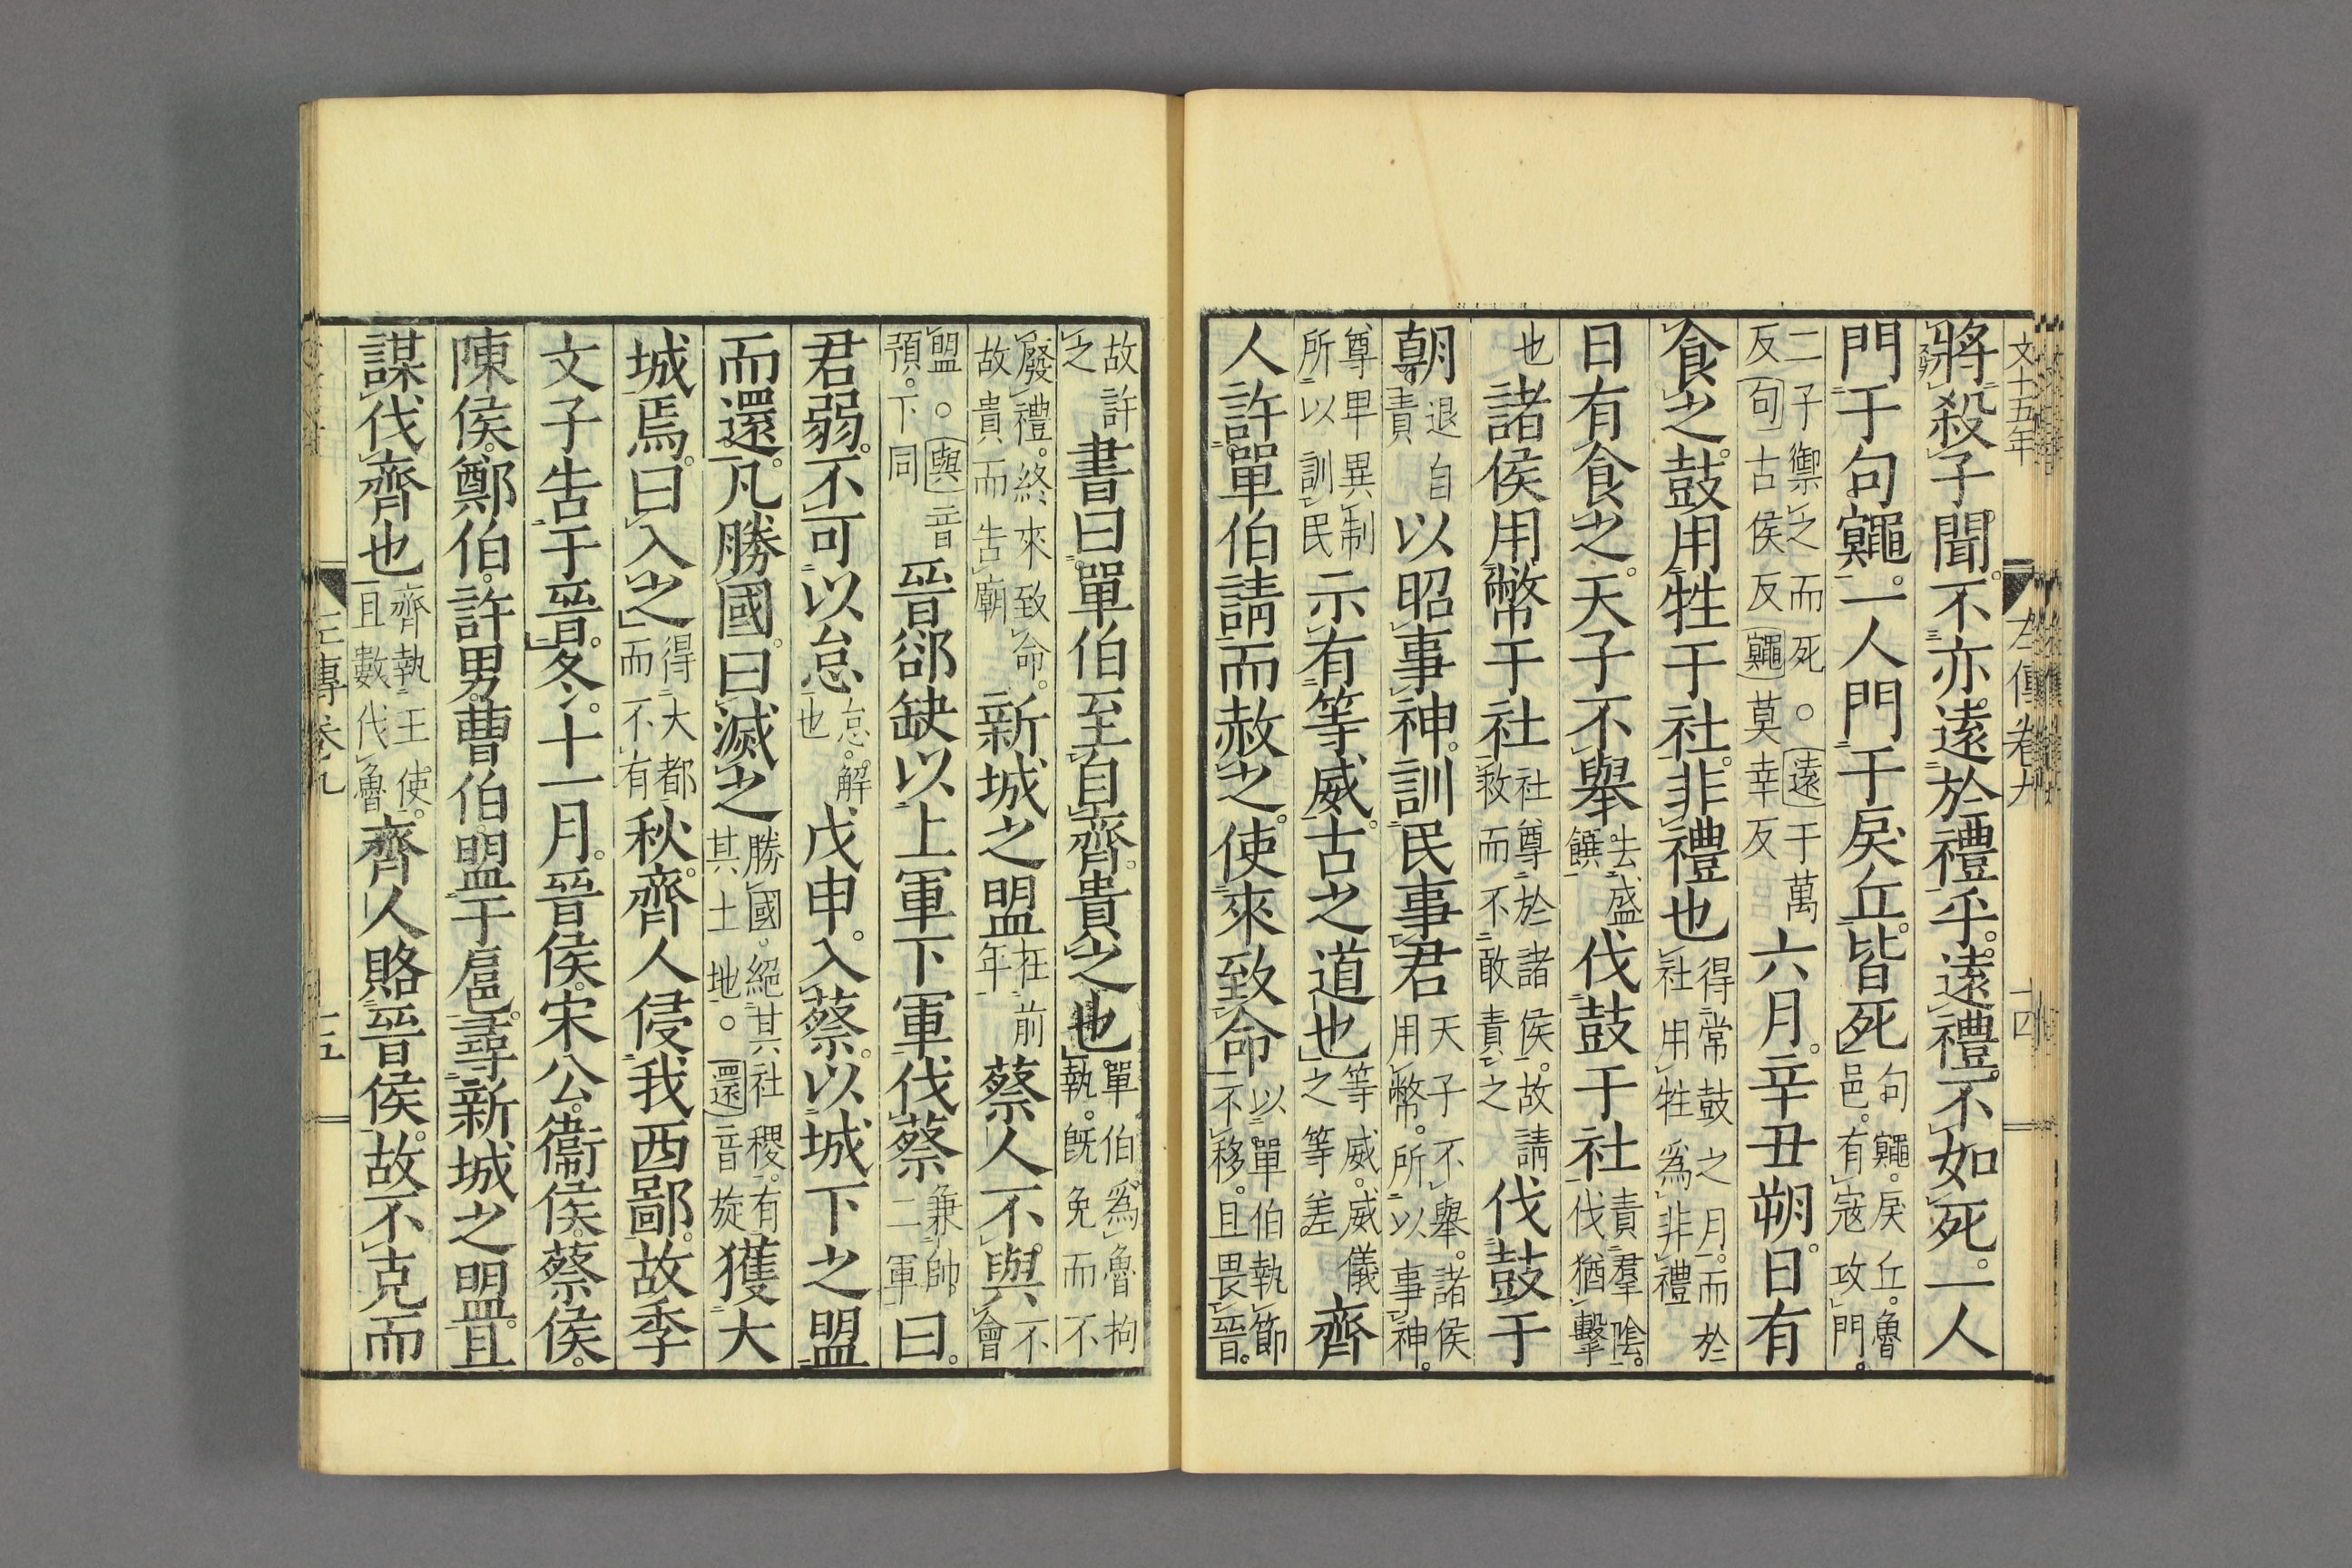 文十五年 左傳卷九 十四
將殺子聞。不亦遠於禮乎。遠禮。不如死。一人
門于句鼆。一人門于戾丘。皆死句鼆。戾丘。魯邑。有寇攻門。
二子禦之而死。○遠于萬反句古侯反鼆莫幸反六月。辛丑朔。日有
食之。鼓用牲于社。非禮也得常鼓之月。而於社用牲爲非禮
日有食之。天子不舉去盛饌伐鼓于社責羣陰。伐猶擊
也諸侯用幣于社社尊於諸侯。故請救而不敢責之伐鼓于
朝退自責以昭事神。訓民事君天子不舉。諸侯用幣。所以事神。
尊卑異制所以訓民示有等威。古之道也等威。威儀之等差。齊
人許單伯請而赦之。使來致命以單伯執節不移。且畏晉。
故許之書曰。單伯至自齊。貴之也單伯爲魯拘執。既免而不
廢禮。終來致命。故貴而告廟新城之盟在前年蔡人不與。不會
盟。○與音預。下同晉郤缺以上軍下軍伐蔡兼帥二軍曰。
君弱。不可以怠怠。解也戊申。入蔡。以城下之盟
而還。凡勝國。曰滅之勝國。絕其社稷。有其土地。○還音旋獲大
城焉。曰入之得大都而不有秋。齊人侵我西鄙。故季
文子告于晉。冬。十一月。晉侯。宋公。衞侯。蔡侯。
陳侯。鄭伯。許男。曹伯。盟于扈。尋新城之盟。且
謀伐齊也齊執王使。且數伐魯齊人賂晉侯。故不克而
左傳卷九 十五